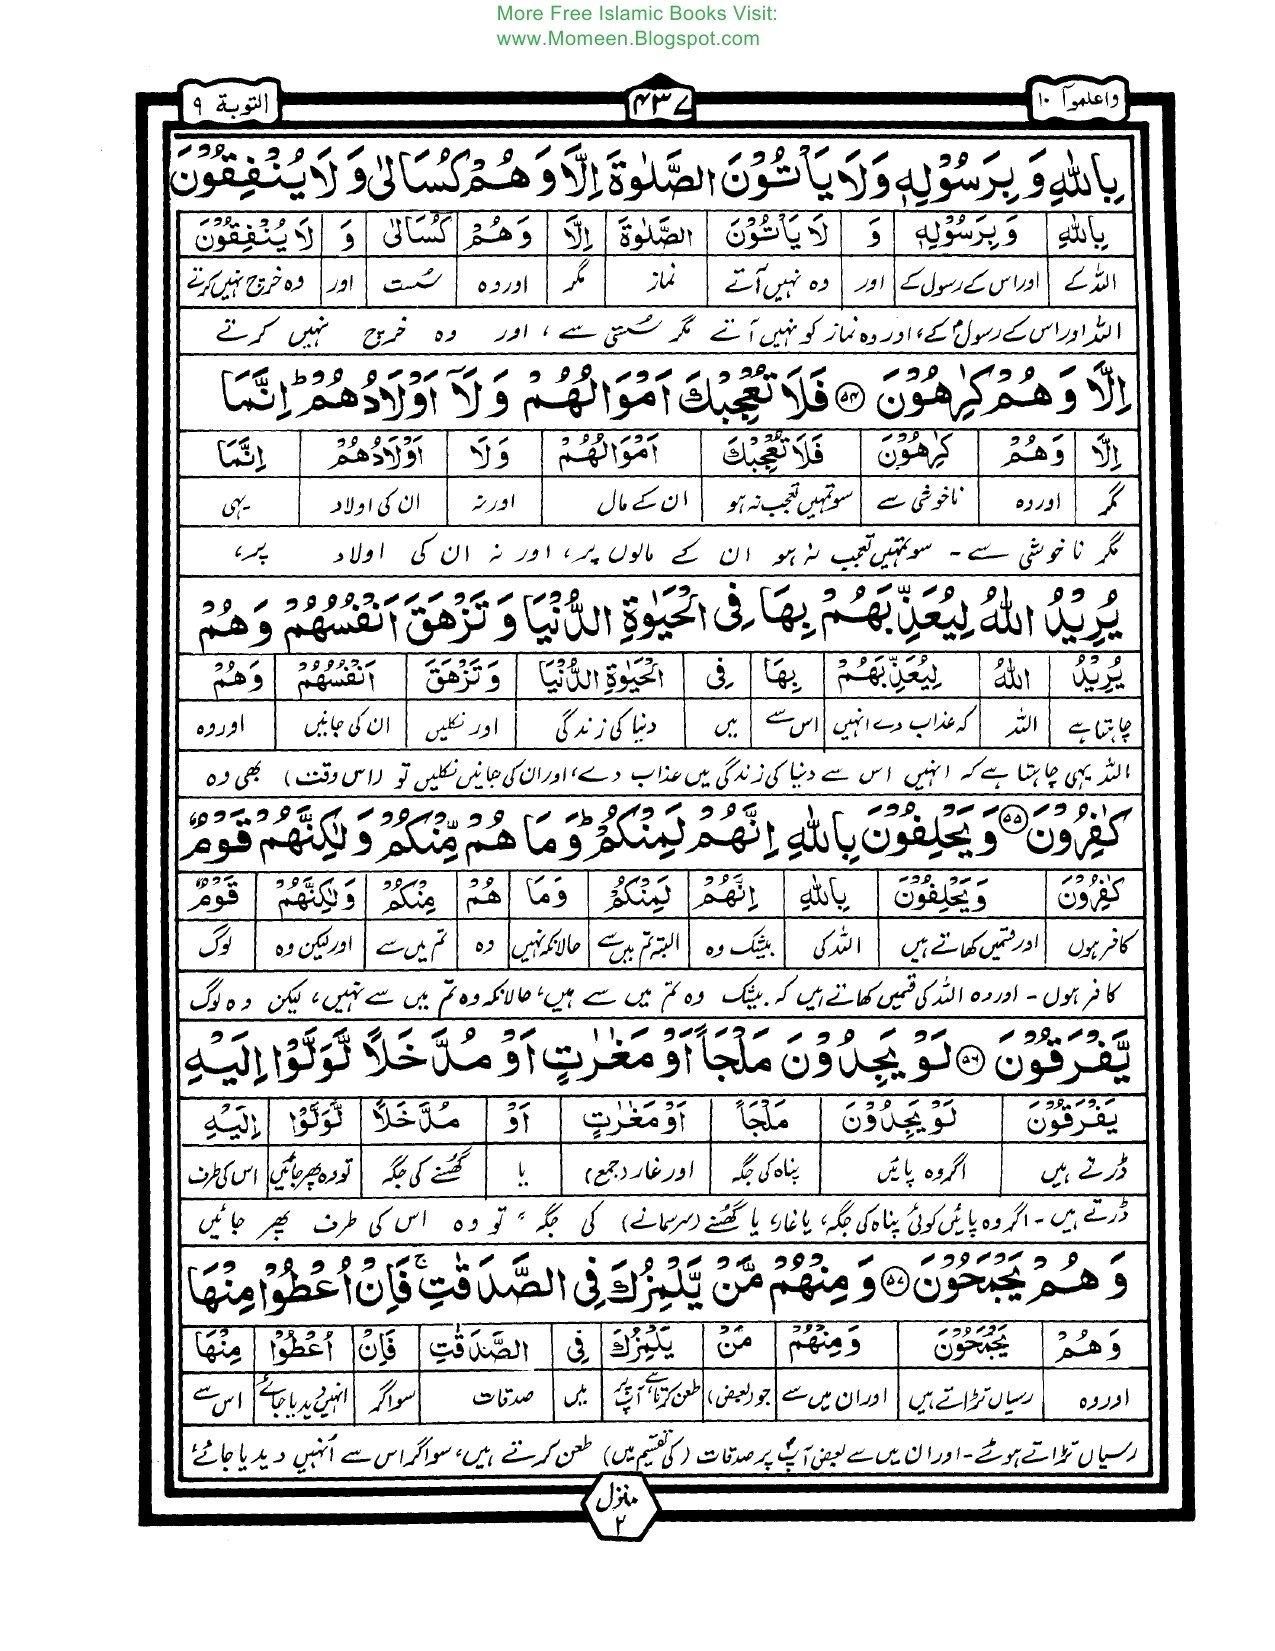 More Free Islamic Books Visit:
www.Momeen.Blogspot.com
واعلموآ ۱۰ ۴۳۷ التوبة ۹
بِاللّٰهِ وَ بِرَسُوْلِهٖ وَلَا يَاْتُوْنَ الصَّلٰوةَ اِلَّا وَهُمْ كُسَالٰى وَلَا يُنْفِقُوْنَ
بِاللّٰهِ وَبِرَسُوْلِهٖ وَ لَا يَاْتُوْنَ الصَّلٰوةَ اِلَّا وَهُمْ كُسَالٰى وَ لَا يُنْفِقُوْنَ
اللہ کے اور اس کے رسول کے اور وہ نہیں آتے نماز مگر اور وہ سُست اور وہ خرچ نہیں کرتے
اللہ اور اس کے رسولؐ کے، اور وہ نماز کو نہیں آتے مگر سُستی سے، اور وہ خرچ نہیں کرتے
اِلَّا وَهُمْ كٰرِهُوْنَ ۵۴ فَلَا تُعْجِبْكَ اَمْوَالُهُمْ وَلَآ اَوْلَادُهُمْ ؕ اِنَّمَا
اِلَّا وَهُمْ كٰرِهُوْنَ فَلَا تُعْجِبْكَ اَمْوَالُهُمْ وَلَا اَوْلَادُهُمْ اِنَّمَا
مگر اور وہ ناخوشی سے سو تمہیں تعجب نہ ہو ان کے مال اور نہ ان کی اولاد یہی
مگر ناخوشی سے - سو تمہیں تعجب نہ ہو ان کے مالوں پر، اور نہ ان کی اولاد پر،
يُرِيْدُ اللّٰهُ لِيُعَذِّبَهُمْ بِهَا فِى الْحَيٰوةِ الدُّنْيَا وَتَزْهَقَ اَنْفُسُهُمْ وَهُمْ
يُرِيْدُ اللّٰهُ لِيُعَذِّبَهُمْ بِهَا فِى الْحَيٰوةِ الدُّنْيَا وَتَزْهَقَ اَنْفُسُهُمْ وَهُمْ
چاہتا ہے اللہ کہ عذاب دے انہیں اس سے میں دنیا کی زندگی اور نکلیں ان کی جانیں اور وہ
اللہ یہی چاہتا ہے کہ انہیں اس سے دنیا کی زندگی میں عذاب دے، اور ان کی جانیں نکلیں تو (اس وقت) بھی وہ
كٰفِرُوْنَ ۵۵ وَيَحْلِفُوْنَ بِاللّٰهِ اِنَّهُمْ لَمِنْكُمْ ؕ وَمَا هُمْ مِّنْكُمْ وَلٰكِنَّهُمْ قَوْمٌ
كٰفِرُوْنَ وَيَحْلِفُوْنَ بِاللّٰهِ اِنَّهُمْ لَمِنْكُمْ وَمَا هُمْ مِنْكُمْ وَلٰكِنَّهُمْ قَوْمٌ
کافر ہوں اور قسمیں کھاتے ہیں اللہ کی بیشک وہ البتہ تم میں سے حالانکہ نہیں وہ تم میں سے اور لیکن وہ لوگ
کافر ہوں - اور وہ اللہ کی قسمیں کھاتے ہیں کہ بیشک وہ تم میں سے ہیں، حالانکہ وہ تم میں سے نہیں، لیکن وہ لوگ
يَّفْرَقُوْنَ ۵۶ لَوْ يَجِدُوْنَ مَلْجَاً اَوْ مَغٰرٰتٍ اَوْ مُدَّخَلًا لَّوَلَّوْا اِلَيْهِ
يَفْرَقُوْنَ لَوْ يَجِدُوْنَ مَلْجَاً اَوْ مَغٰرٰتٍ اَوْ مُدَّخَلًا لَّوَلَّوْا اِلَيْهِ
ڈرتے ہیں اگر وہ پائیں پناہ کی جگہ اور غار (جمع) یا گھُسنے کی جگہ تو وہ پھر جائیں اس کی طرف
ڈرتے ہیں - اگر وہ پائیں کوئی پناہ کی جگہ، یا غار، یا گھُسنے (سر سمانے) کی جگہ، تو وہ اس کی طرف پھر جائیں
وَهُمْ يَجْمَحُوْنَ ۵۷ وَمِنْهُمْ مَّنْ يَّلْمِزُكَ فِى الصَّدَقٰتِ ۚ فَاِنْ اُعْطُوْا مِنْهَا
وَهُمْ يَجْمَحُوْنَ وَمِنْهُمْ مَنْ يَلْمِزُكَ فِى الصَّدَقٰتِ فَاِنْ اُعْطُوْا مِنْهَا
اور وہ رسیاں تڑاتے ہیں اور ان میں سے جو (بعض) طعن کرتا ہے آپ پر میں صدقات سو اگر انہیں دیدیا جائے اس سے
رسیاں تڑاتے ہوئے - اور ان میں سے بعض آپؐ پر صدقات (کی تقسیم میں) طعن کرتے ہیں، سو اگر اس سے اُنہیں دیدیا جائے
منزل
۲